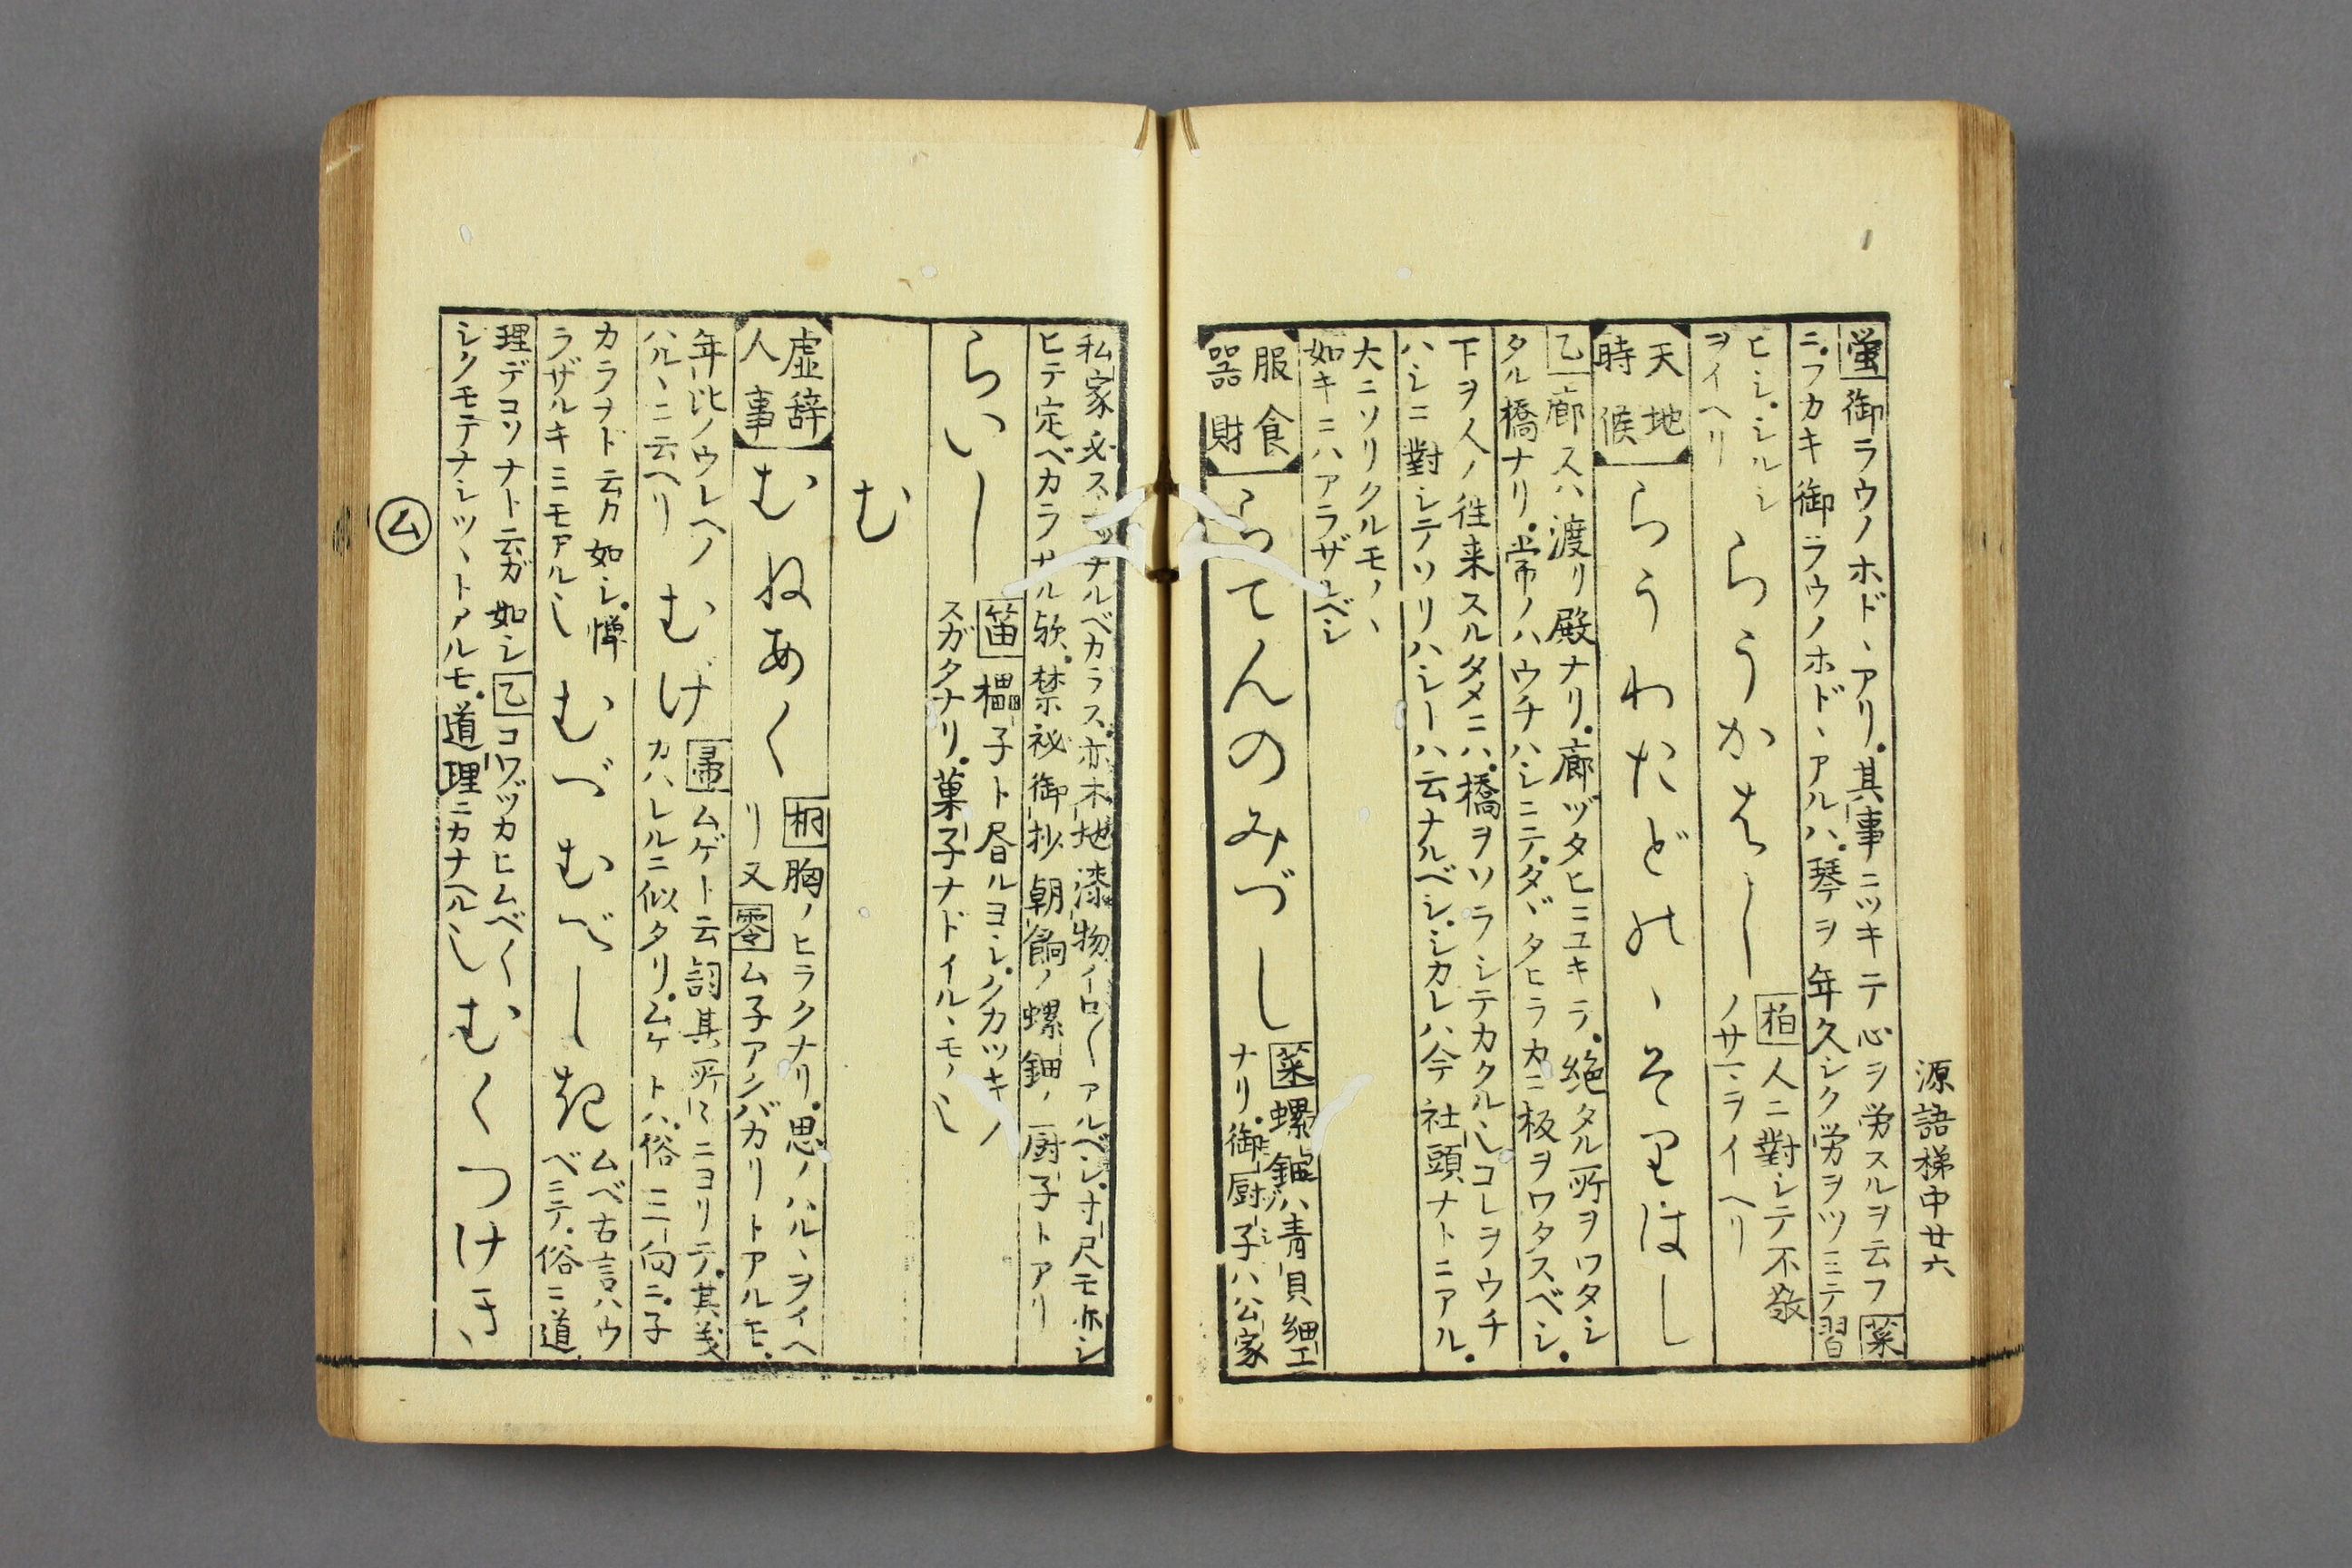 源語梯中廿六
螢御ラウノホドヽアリ。其事ニツキテ心ヲ労スルヲ云フ菜
ニ。フカキ御ラウノホドヽアルハ。琴ヲ年久シク労ヲツミテ習
ヒシ。シルシ
ヲイヘリ
らうかはし
柏人ニ對シテ不敬
ノサマヲイヘリ
天地
時候
らうわたどのヽそりはし
乙廊スハ渡リ殿ナリ。廊ヅタヒニユキラ。絶タル所ヲワタシ
タル橋ナリ。常ノハウチハシニテ。タヾタヒラカニ板ヲワタスベシ。
下ヲ人ノ徃来スルタメニハ。橋ヲソラシテカクル也コレヲウチ
ハシニ對シテソリハシトハ云ナルベシ。シカレハ今社頭ナトニアル。
大ニソリクルモノハ
如キニハアラザルベシ
服食
器財
らてんのみづし
菜螺鈿ハ青貝細工
ナリ。御厨子ハ公家
私家必ス ナルベカラス。亦木地漆物イロ〳〵アルベシ。寸尺モ亦シ
ヒテ定ベカラサル欤。禁祕御抄朝餉ノ螺鈿ノ厨子トアリ
らいし
笛櫑子ト昼ルヨシ。 カツキノ
スガタナリ。菓子ナドイルヽモノ也
む
虚辞
人事
むねあく
桐胸ノヒラクナリ。思ノハルヽヲイヘ
リ又零ムネアンバカリトアルモ。
年比ノウレヘノ
ハルヽニ云ヘリ
むげ
帚ムゲト云詞其所〻ニヨリテ。其義
カハレルニ似タリ。ムケトハ。俗ニ一向ニ。子
カラナト云カ如シ。憚
ラザルキミモアル也
むべむべし起
ムベ古言ハウ
ベニテ。俗ニ道
理デコソナト云ガ如シ乙コワヅカヒムベ〳〵
シクモテナシツヽトアルモ。道理ニカナヘル也
むくつけき
ム